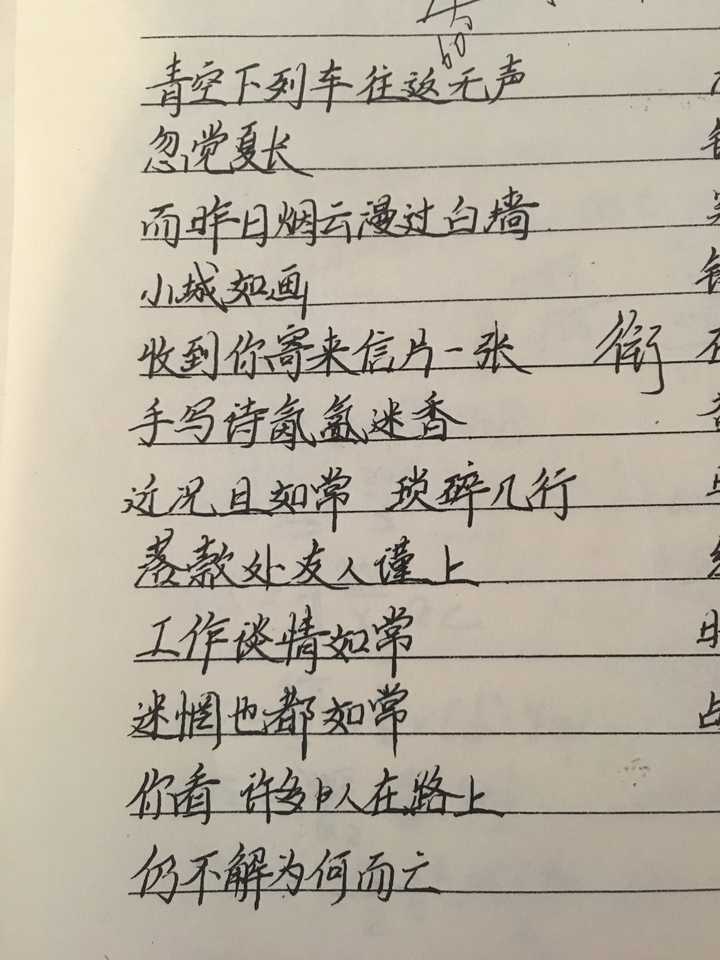 青空下列车往返无声
忽觉夏长
而昨日烟云漫过白墙
小城如画
收到你寄来信片一张 衔
手写诗氤氲迷香
近况且如常 琐碎几行
落款处友人谨上
工作谈情如常
迷惘也都如常
你看 许多人在路上
仍不解为何而亡